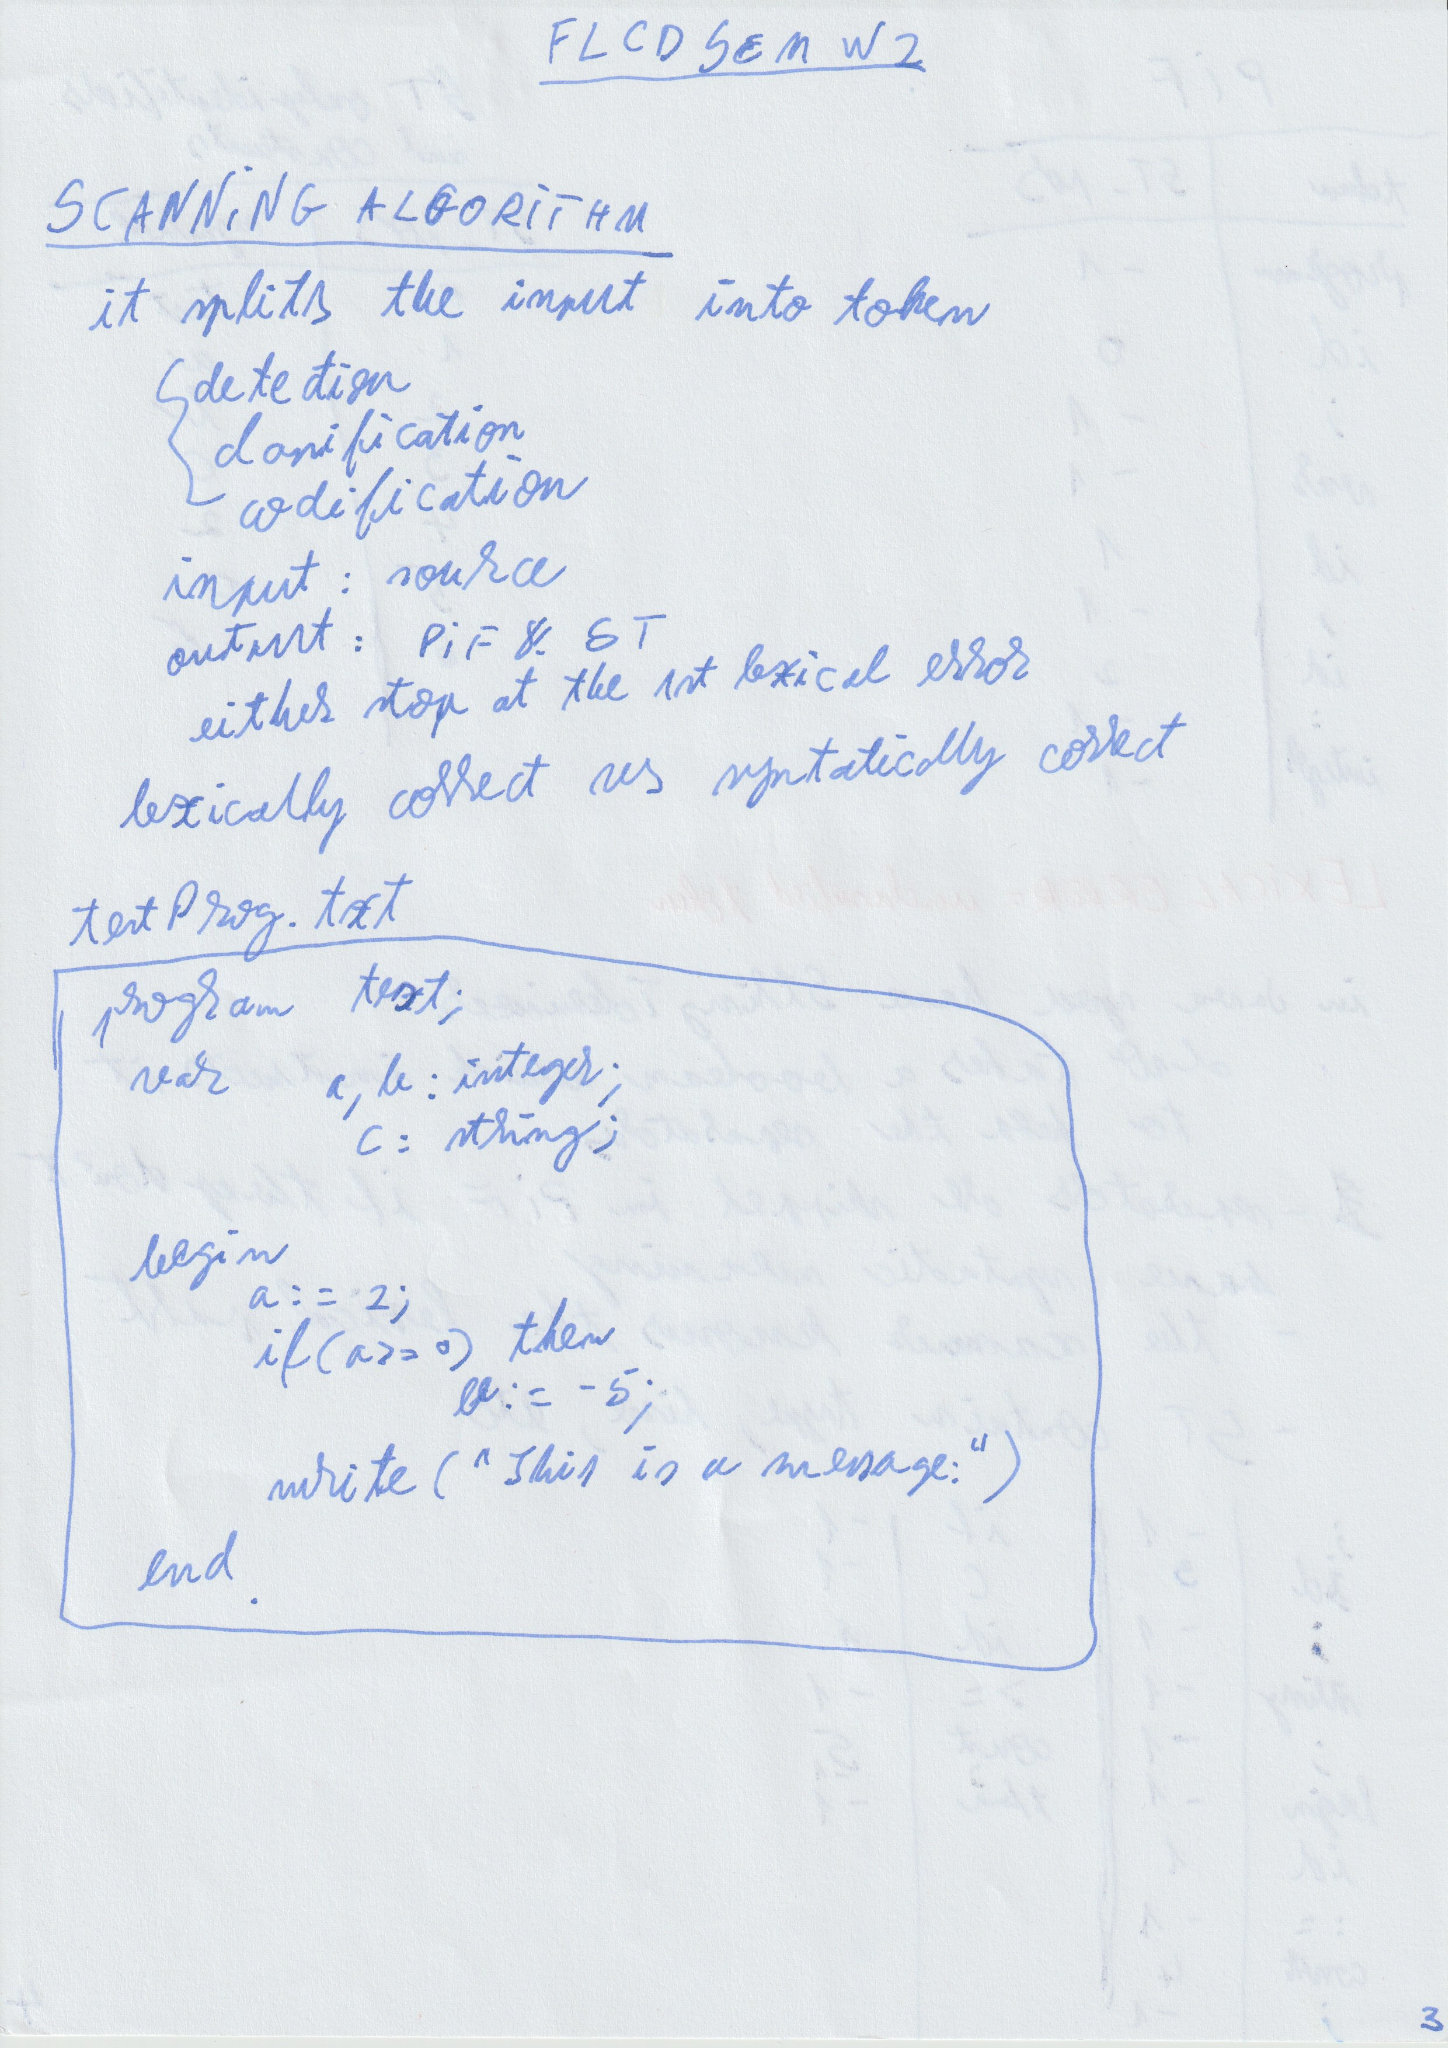 FLCD SEM W2
SCANNING ALGORITHM
it splits the input into token
detection
classification
codification
input : source
output : PIF & ST
either stop at the 1st lexical error
lexically correct vs syntatically correct
testProg.txt
program text;
var a, b : integer;
c : string;
begin
a := 2;
if (a >= 0) then
b := -5;
write ("This is a message:")
end.
3